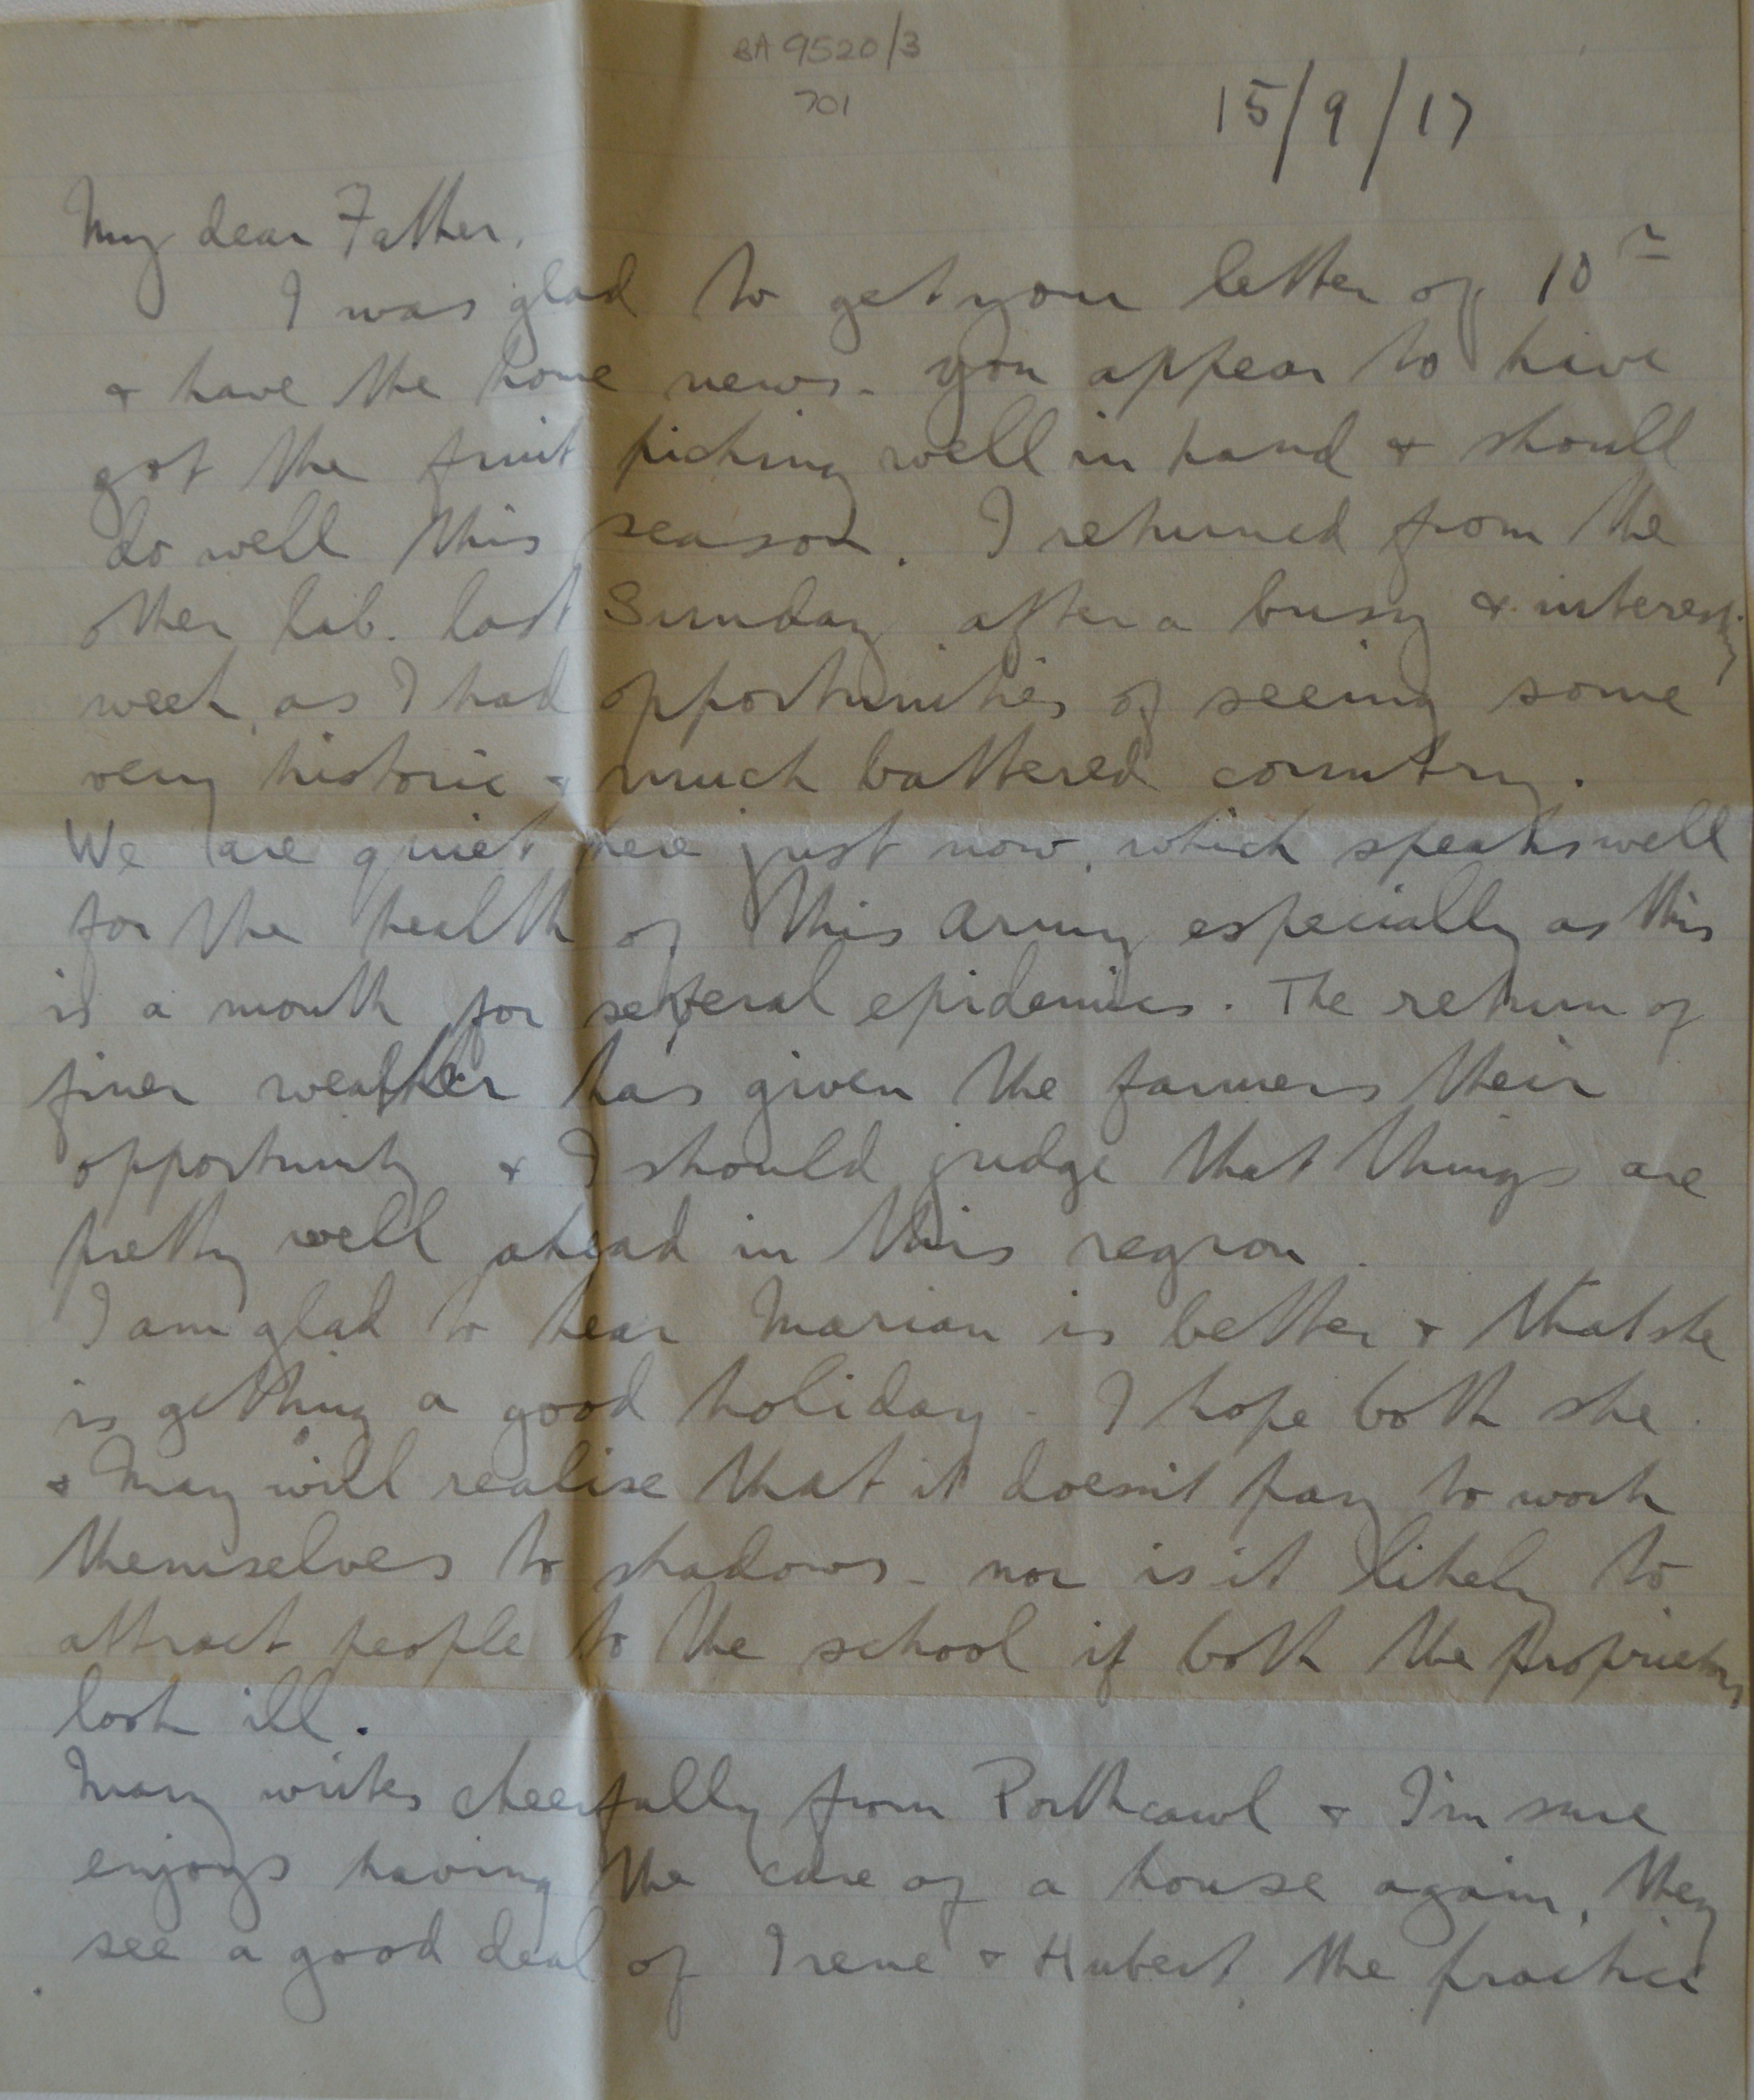 BA 9520/3
701
15/9/17
My dear Father,
I was glad to get your letter of 10th
& have the home news - you appear to have
got the fruit picking well in hand & should
do well this season. I returned from the
other lab. last Sunday after a busy & interesting
week, as I had opportunities of seeing some
very historic & much battered country.
We are quiet here just now, which speaks well
for the health of this Army especially as this
is a month for several epidemics. The return of
finer weather has given the farmers their
opportunity & I should judge that things are
pretty well ahead in this region.
I am glad to hear Marian is better & that she
is getting a good holiday - I hope both she
& May will realise that it doesn't pay to work
themselves to shadows - nor is it likely to
attract people to the school if both the proprietors
look ill.
Mary writes cheerfully from Porthcawl & I'm sure
enjoys having the care of a house again, they
see a good deal of Irene & Hubert, the practice